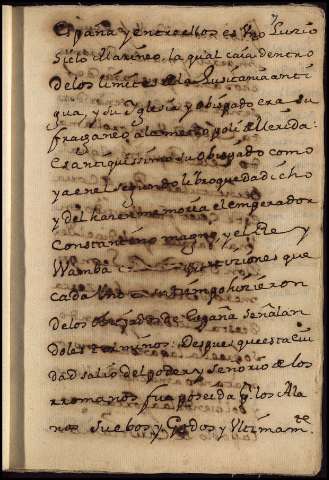 España y entre ellos es uno Luzio
Siclo Marineo, la qual caia dentro
de los limites de la Lusitania anti
gua, y su Iglesia y obispado era su
fraganeo a la metropoli de Merida:
Es antiquissimo su obispado como
ya en el segundo libro queda dicho
y del hazen memoria el emperador
Constantino magno, y el Rey
Wamba en particiones que
cada uno en su tiempo hizieron
de los obispados de España señalan
doles terminos: Despues que esta ciu
dad salio del poder y señorio de los
rromanos fue poseida por los Ala
nos suebos y Godos y ultimamte